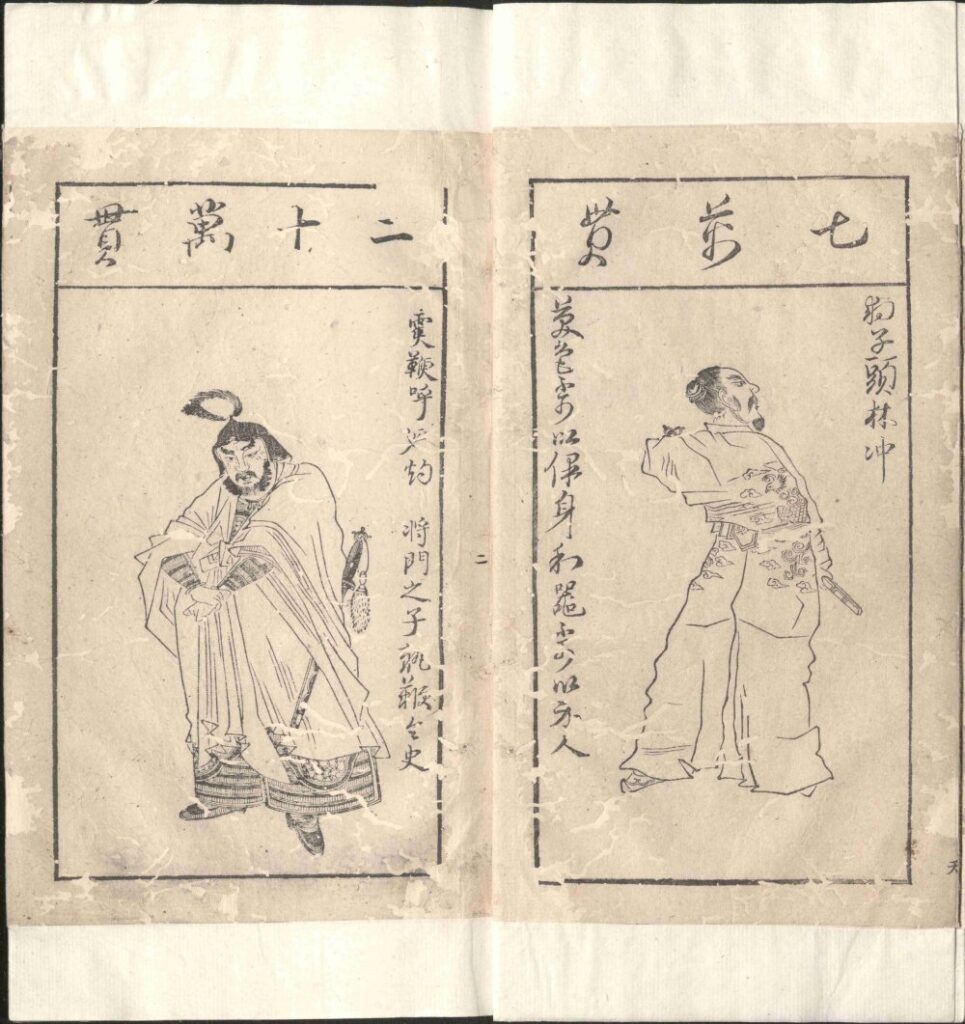 七萬貫
豹子頭林冲
美色不可以保身利器不可以示人
二十萬貫
雙鞭呼延灼 將門之子執鞭令史
二